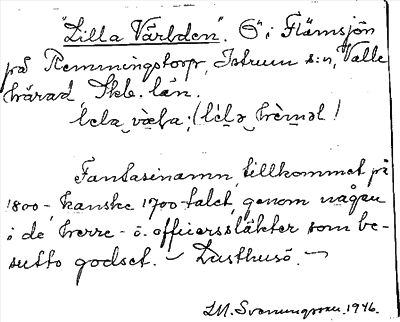 "Lilla Världen". Ö i Flämsjön
på Remmingstorp, Istrum s:n, Valle
härad, Skb. län.
Fantasinamn, tillkommet på
1800-, kanske 1700-talet, genom någon
i de herre- o. officerssläkter som be-
sutto godset. – Lusthusö. –
1946.